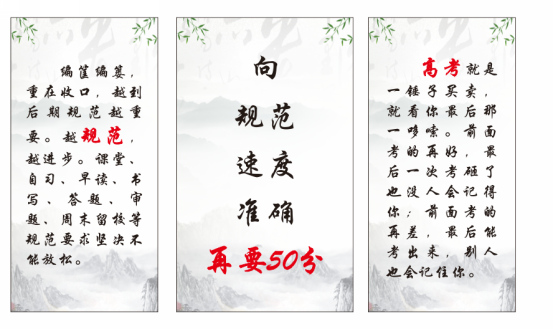 编筐编篓，
重在收口，越到
后期规范越重
要。越规范，
越进步。课堂、
自习、早读、书
写、答题、审
题、周末留校等
规范要求坚决不
能放松。
向
规范
速度
准确
再要50分
高考就是
一锤子买卖，
就看你最后那
一哆嗦。前面
考的再好，最
后一次考砸了
也没人会记得
你；前面考的
再差，最后能
考出来，别人
也会记住你。